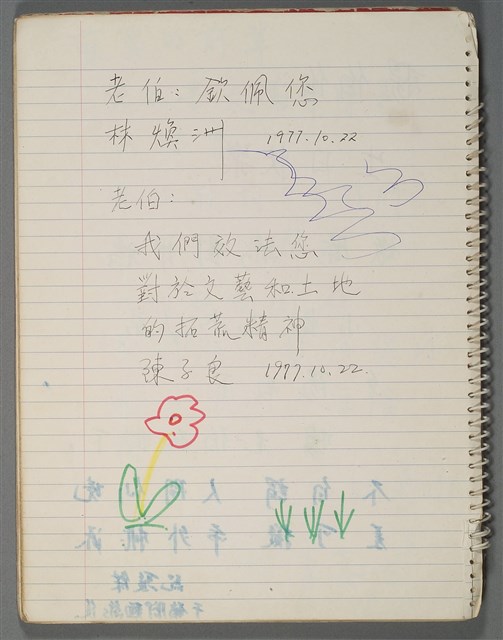 老伯：欽佩您
林煥洲 1977.10.22
老伯：
我們效法您
對於文藝和土地
的拓荒精神
陳子良 1977.10.22.